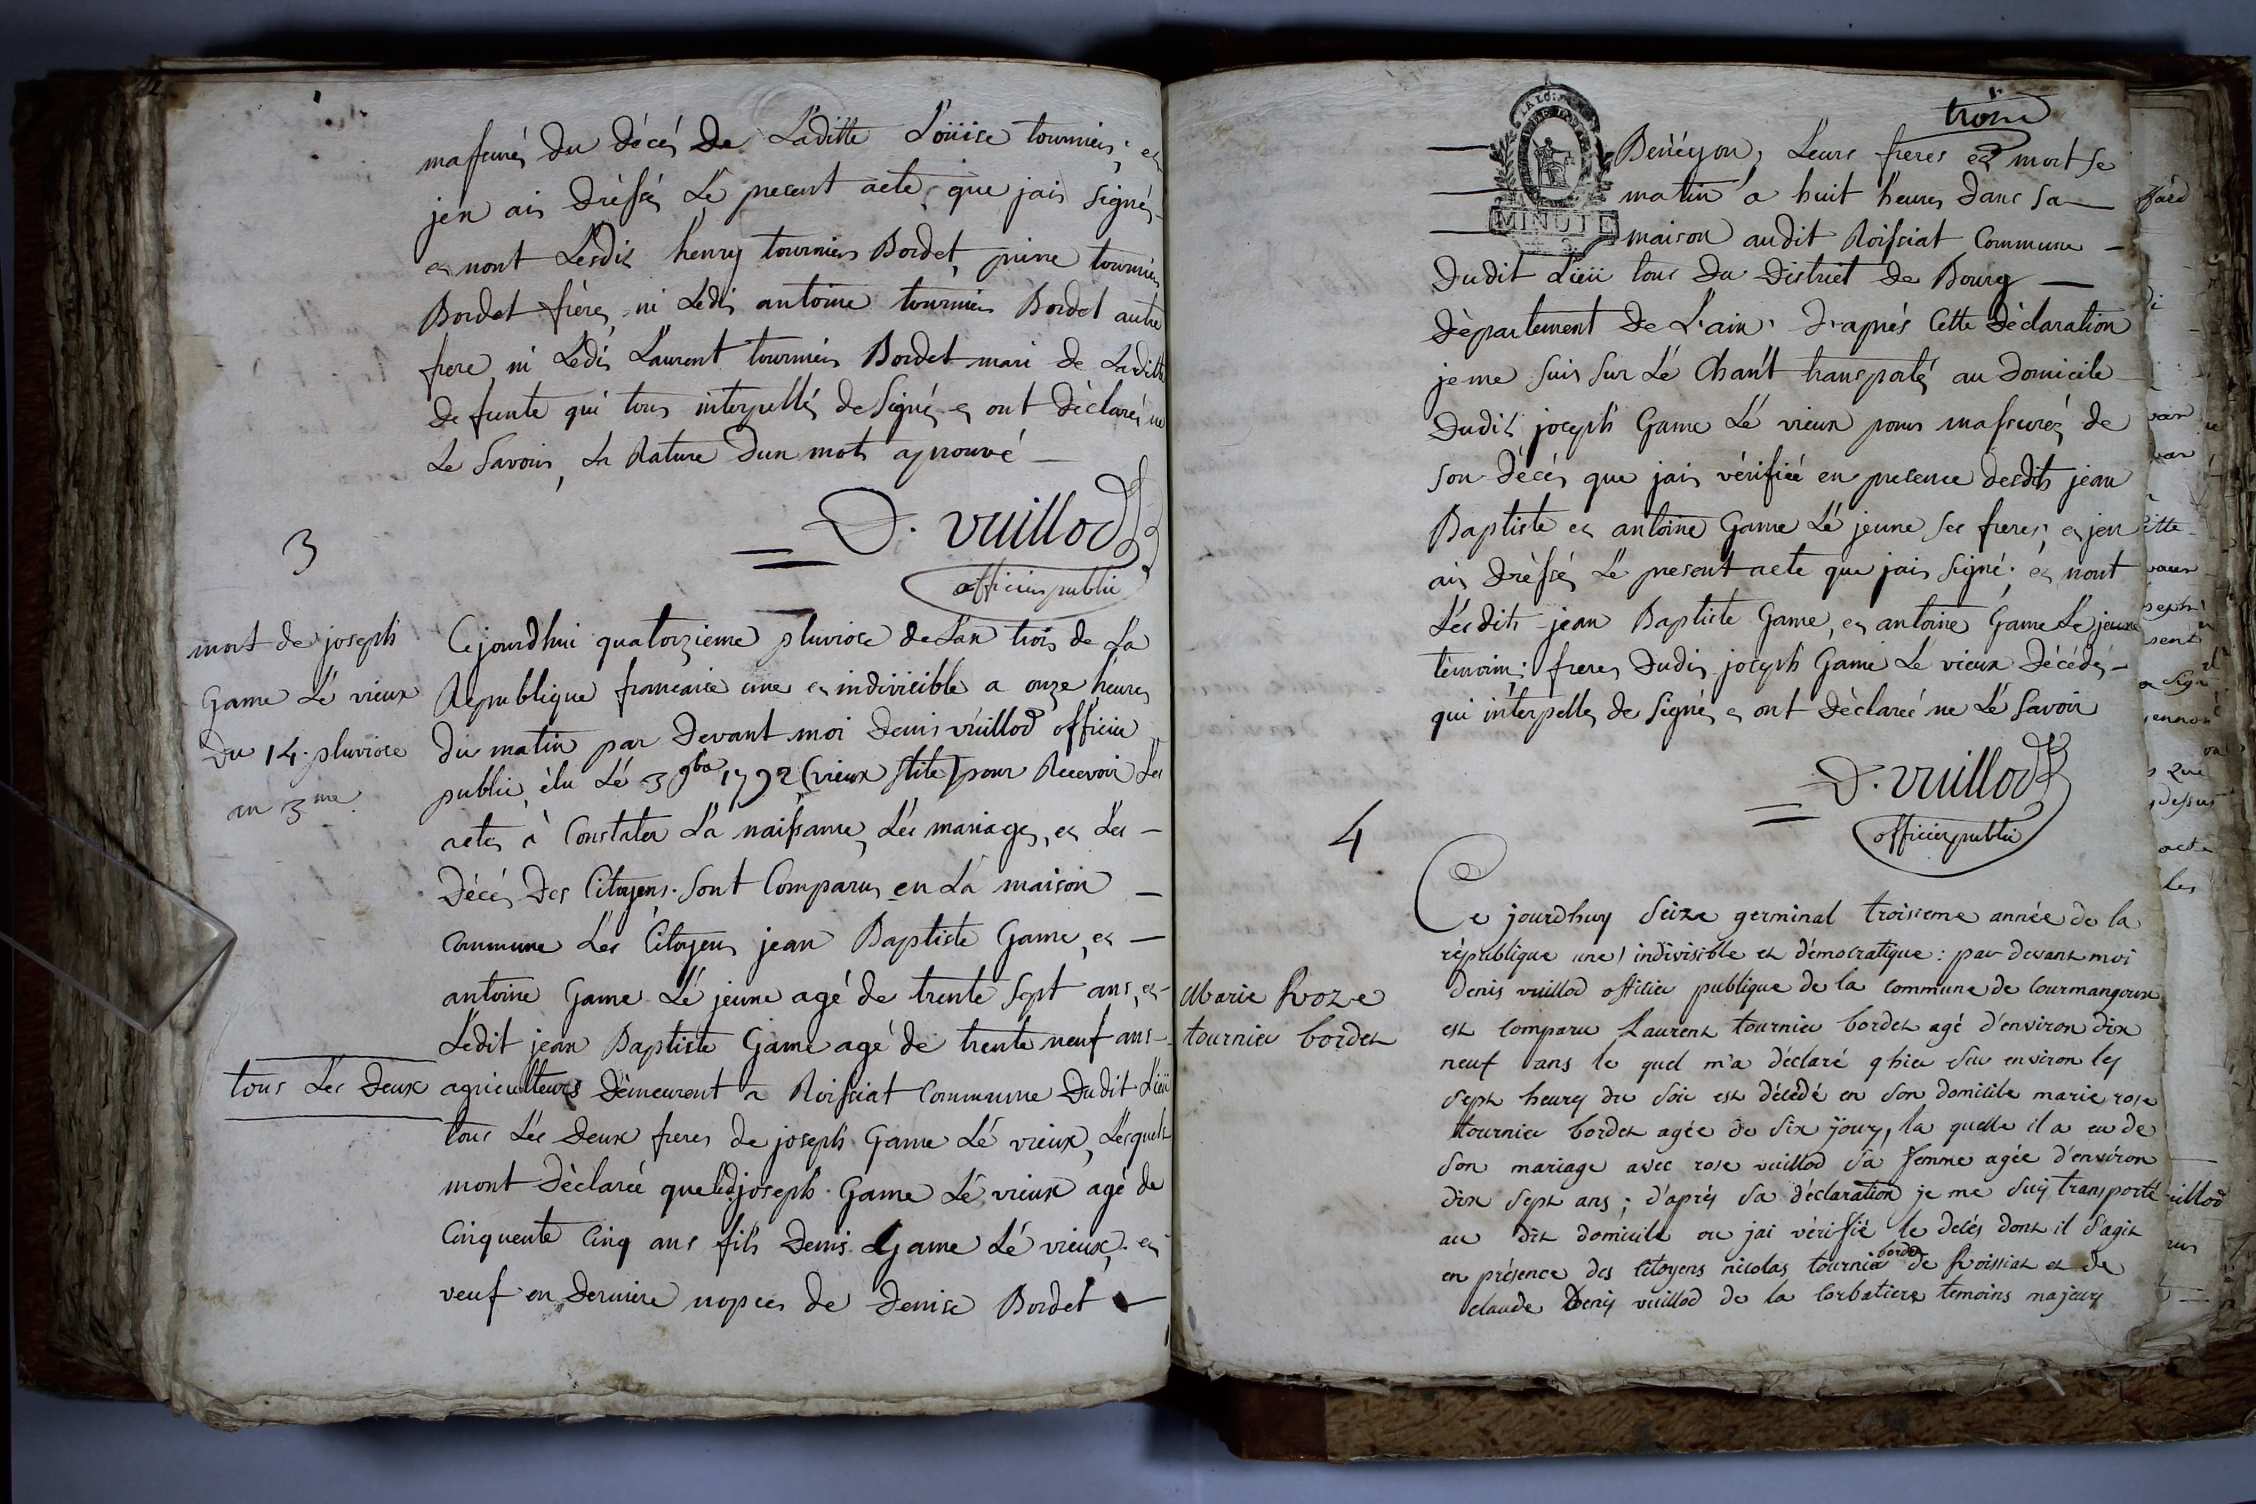 massurés du décés De Laditte Loüise tournier; et
jen ais dréssés Le present acte que jais signés
et nont Lesdis henry tournier Bordet, pierre tournier
Bordet fréres, ni Ledis antoine tournier Bordet autre
frere, ni Ledis Laurent tournier Bordet mari de Laditte
defunte qui tous interpellés de signés et ont déclarés ne
Le savoir, La Rature dun mots aprouvé
D. vuillod
officier public
3
mort de joseph
Game Lé vieux
du 14 pluviose
an 3me
Cejourdhui quatorzieme pluviose de Lan trois de La
Republique francaise une et indivisible a onze heures
du matin par devant moi denis vuillod officier
public, élu Lé 3 9bre 1792 (vieux stile) pour Recevoir Les
actes à Constater La naissance, Lés mariages, et Les
décés des Citoyens. sont Comparus en La maison
commune Lés Citoyens jean Baptiste Game, et
antoine Game Lé jeune agé de trente sept ans, et
Ledit jean Baptiste Game agé de trente neuf ans
tous Lés deux agriculteurs démeurent a Roissiat commune dudit Lieü
tous Lés deux freres de joseph Game Lé vieux, Lesquels
mont déclaréé queledjoseph Game Lé vieux agé de
Cinquente Cinq ans fils denis Game Lé vieux, et
veuf en derniere nopces de denise Bordet
trois
MINUTE
Benéyon, Leurs freres est mort se
matin a huit heures dans sa
maison audit Roissiat Commune
dudit Lieü tous du district de Bourg
département de L'ain. d'aprés Cette déclaration
je me suis sur Lé Chant transportés au domicile
dudit joseph Game Lé vieux pour massurés de
son décés que jais vérifiéé en presence desdits jean
Baptiste et antoine Game Lé jeune ses freres; et jen
ais dréssés Lé present acte que jais signé. et nont
Lésdits jean Baptiste Game, et antoine Game Le jeune
témoins; freres dudis joseph Game Lé vieux décédés
qui interpelles de signés et ont déclaréé ne Lé savoir
D. vuillod
officier public
4
Marie Roze
tournier bordet
Ce jourdhuy seize germinal troisieme année de la
république une, indivisible et démocratique: par devant moi
denis vuillod officier publique de la commune de courmangoux
est comparu Laurent tournier bordet agé d'environ dix
neuf ans le quel m'a déclaré q hier sur environ les
sept heures du soir est décédé en son domicile marie rose
tournier bordet agée de six jours, la quelle il a eu de
son mariage avec rose vuillod sa femme agée d'environ
dix sept ans; d'aprés sa déclaration je me suis transporté
au dit domicile ou jai vérifié le décés dont il s'agit
en présence des citoyens nicolas tournier bordet de Roissiat et de
claude denis vuillod de la corbatiere temoins majeurs